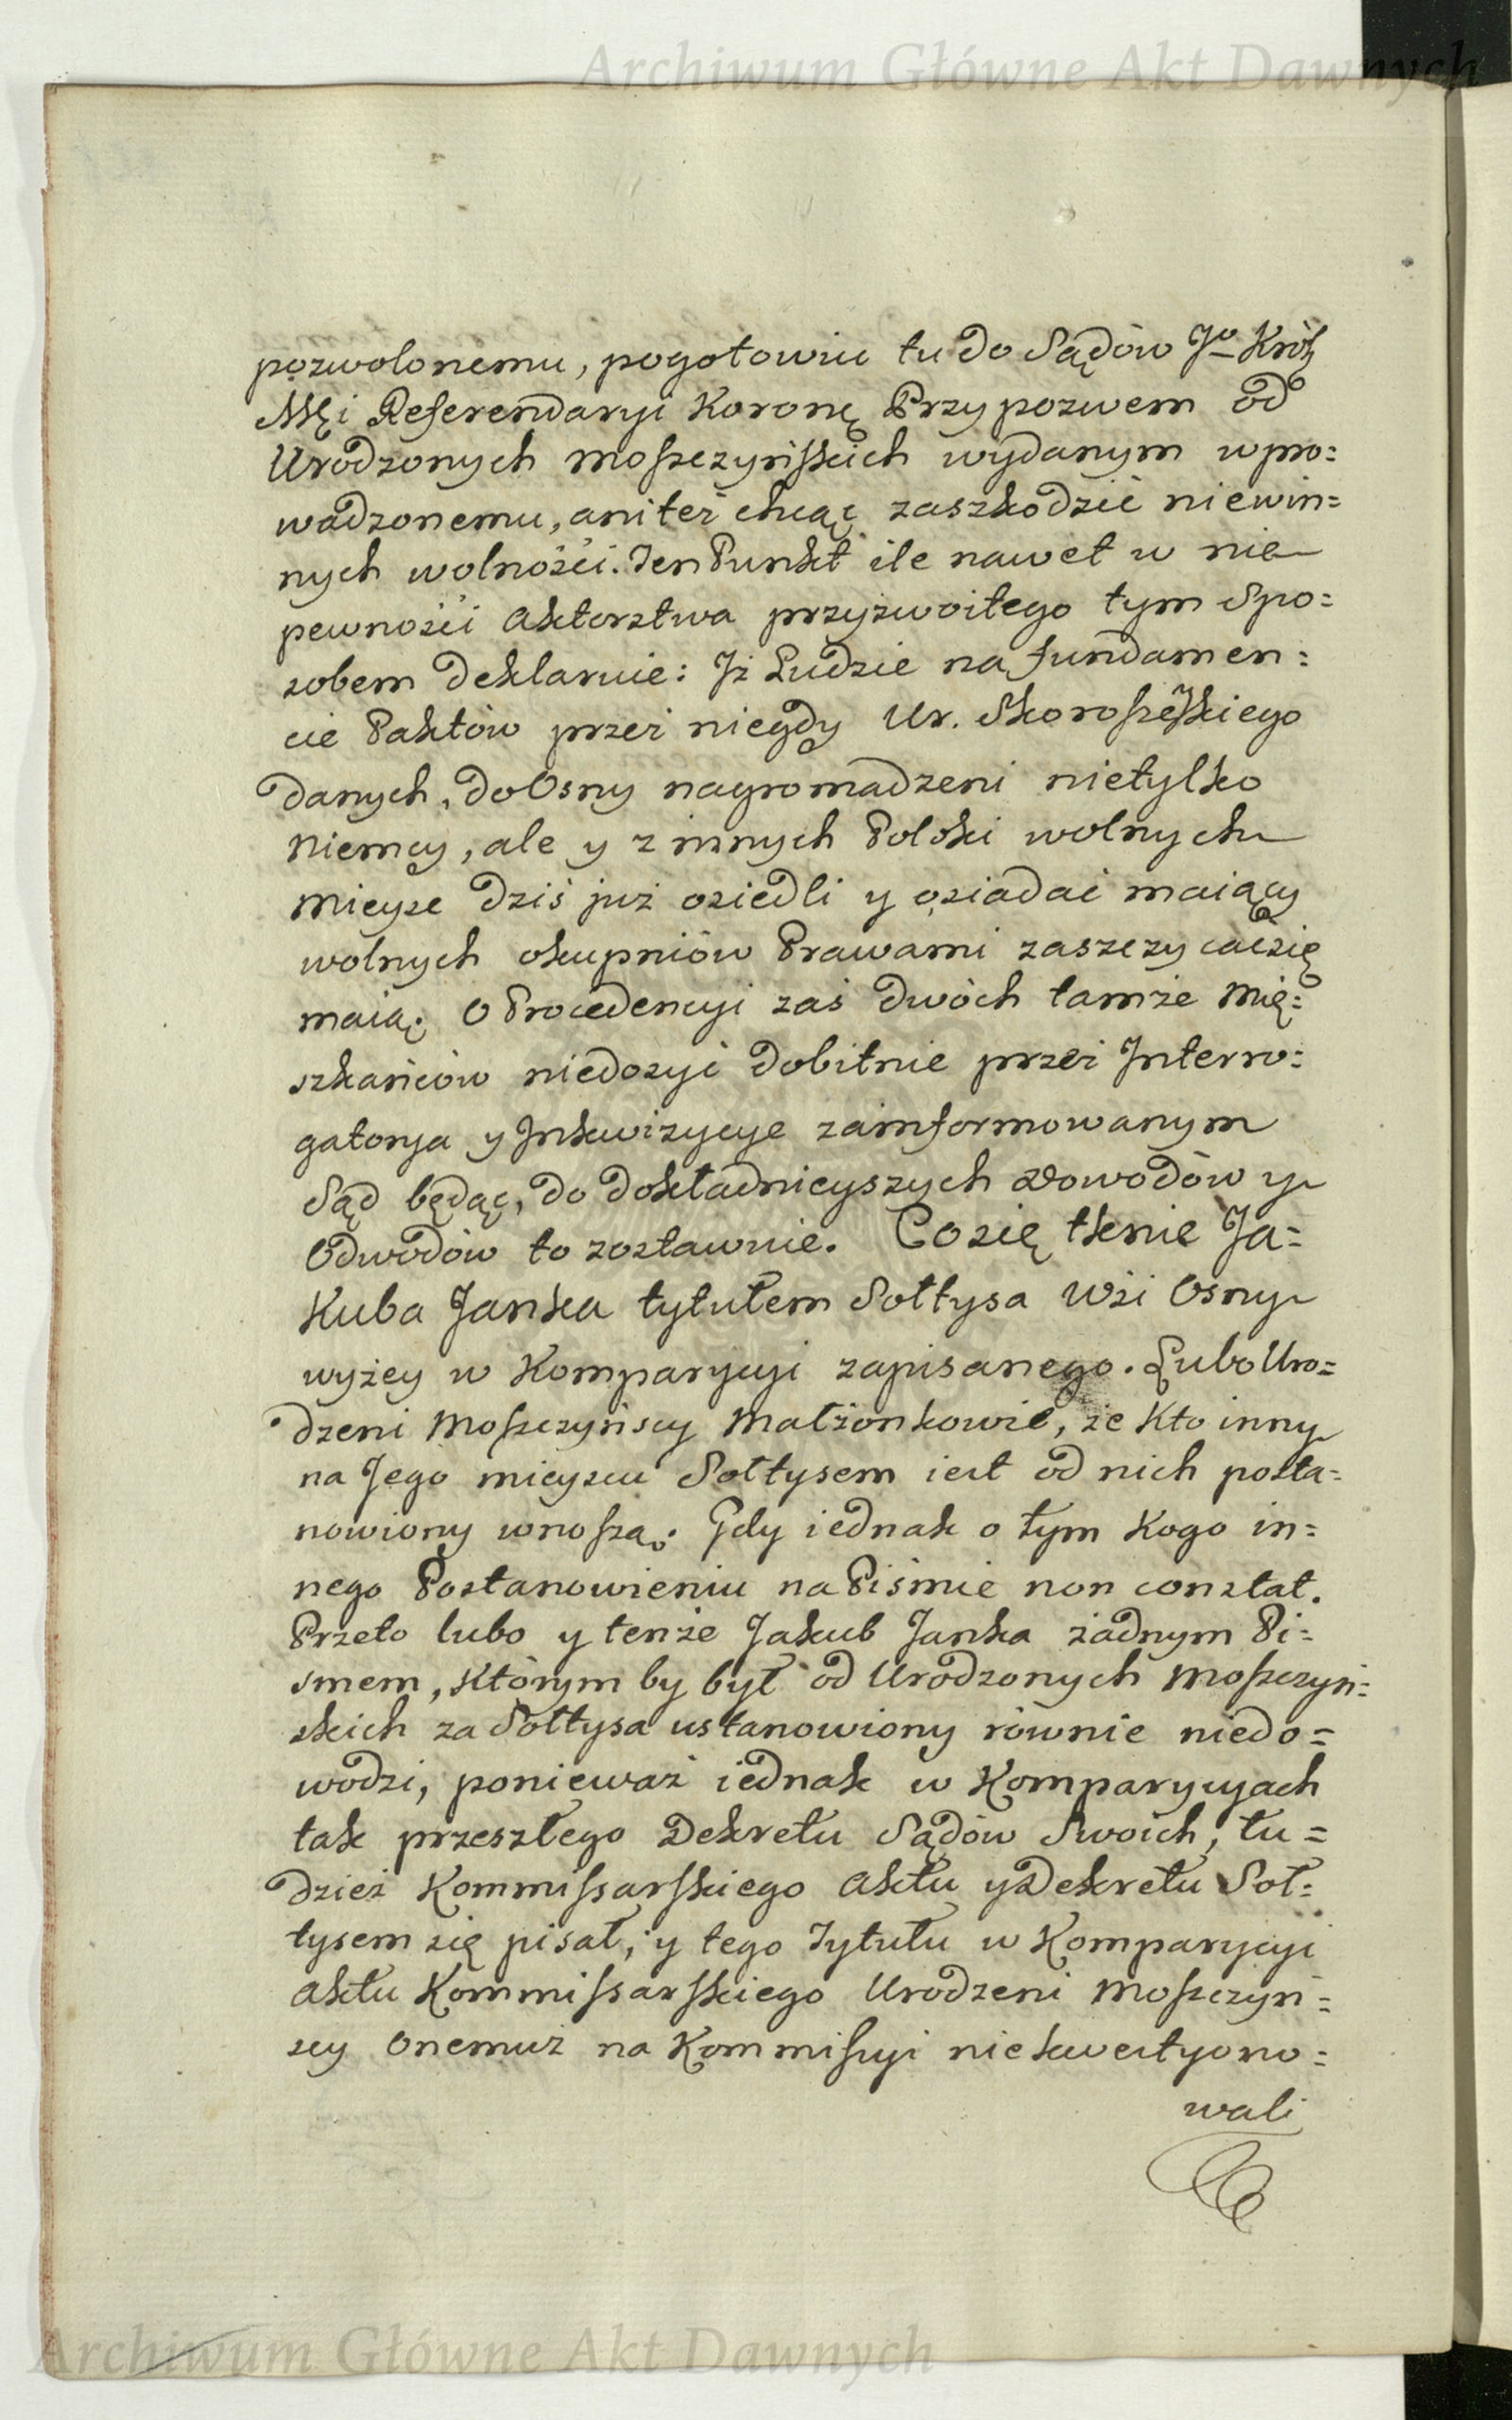 Archiwum Główne Akt Dawnych
pozwolonemu, pogotowiu tu do Sądów Jo Król
Mći Referendaryi Koronę Przypozwem od
Urodzonych Moszczyńskich wydanym wpro=
wadzonemu, ani też chcąc zaszkodzić niewin=
nych wolności. Ten Punkt ile nawet w nie
pewności aktorstwa przyzwoitego tym Spo=
sobem deklaruie: Iż Ludzie na fundamen=
cie Paktów przez niegdy Ur. Skoroszeskiego
danych, do Osny nagromadzeni nietylko
Niemcy, ale y z innych Polski wolnych
mieysc dziś już osiedli y osiadać maiący
wolnych okupniów Prawami zaszczycać się
maią. O Procedencyi zaś dwóch tamże mię=
szkańców niedosyć dobitnie przez Interro=
gatorya y Inkwizycye zainformowanym
Sąd będąc, do dokładnieyszych dowodów y
Odwodów to zostawuie. Co się tknie Ja=
kuba Janka tytułem Sołtysa Wsi Osny
wyżey w Komparycyi zapisanego. Lubo Uro=
dzeni Moszczyńscy Małżonkowie, że kto inny
na Jego mieyscu Sołtysem iest od nich posta=
nowiony wnoszą. Gdy iednak o tym kogo in=
nego Postanowieniu na Piśmie non constat.
Przeto lubo y tenże Jakub Janka żadnym Pi=
smem, którym by był od Urodzonych Moszczyń=
skich za Sołtysa ustanowiony równie niedo=
wodzi, ponieważ iednak w Komparycyach
tak przeszłego Dekretu Sądów Swoich, tu=
dzież Kommissarskiego aktu y Dekretu Soł=
tysem się pisał, y tego Tytułu w Komparycyi
aktu Kommissarskiego Urodzeni Moszczyń=
scy Onemuż na Kommissyi niekwestyono=
wali
Archiwum Główne Akt Dawnych